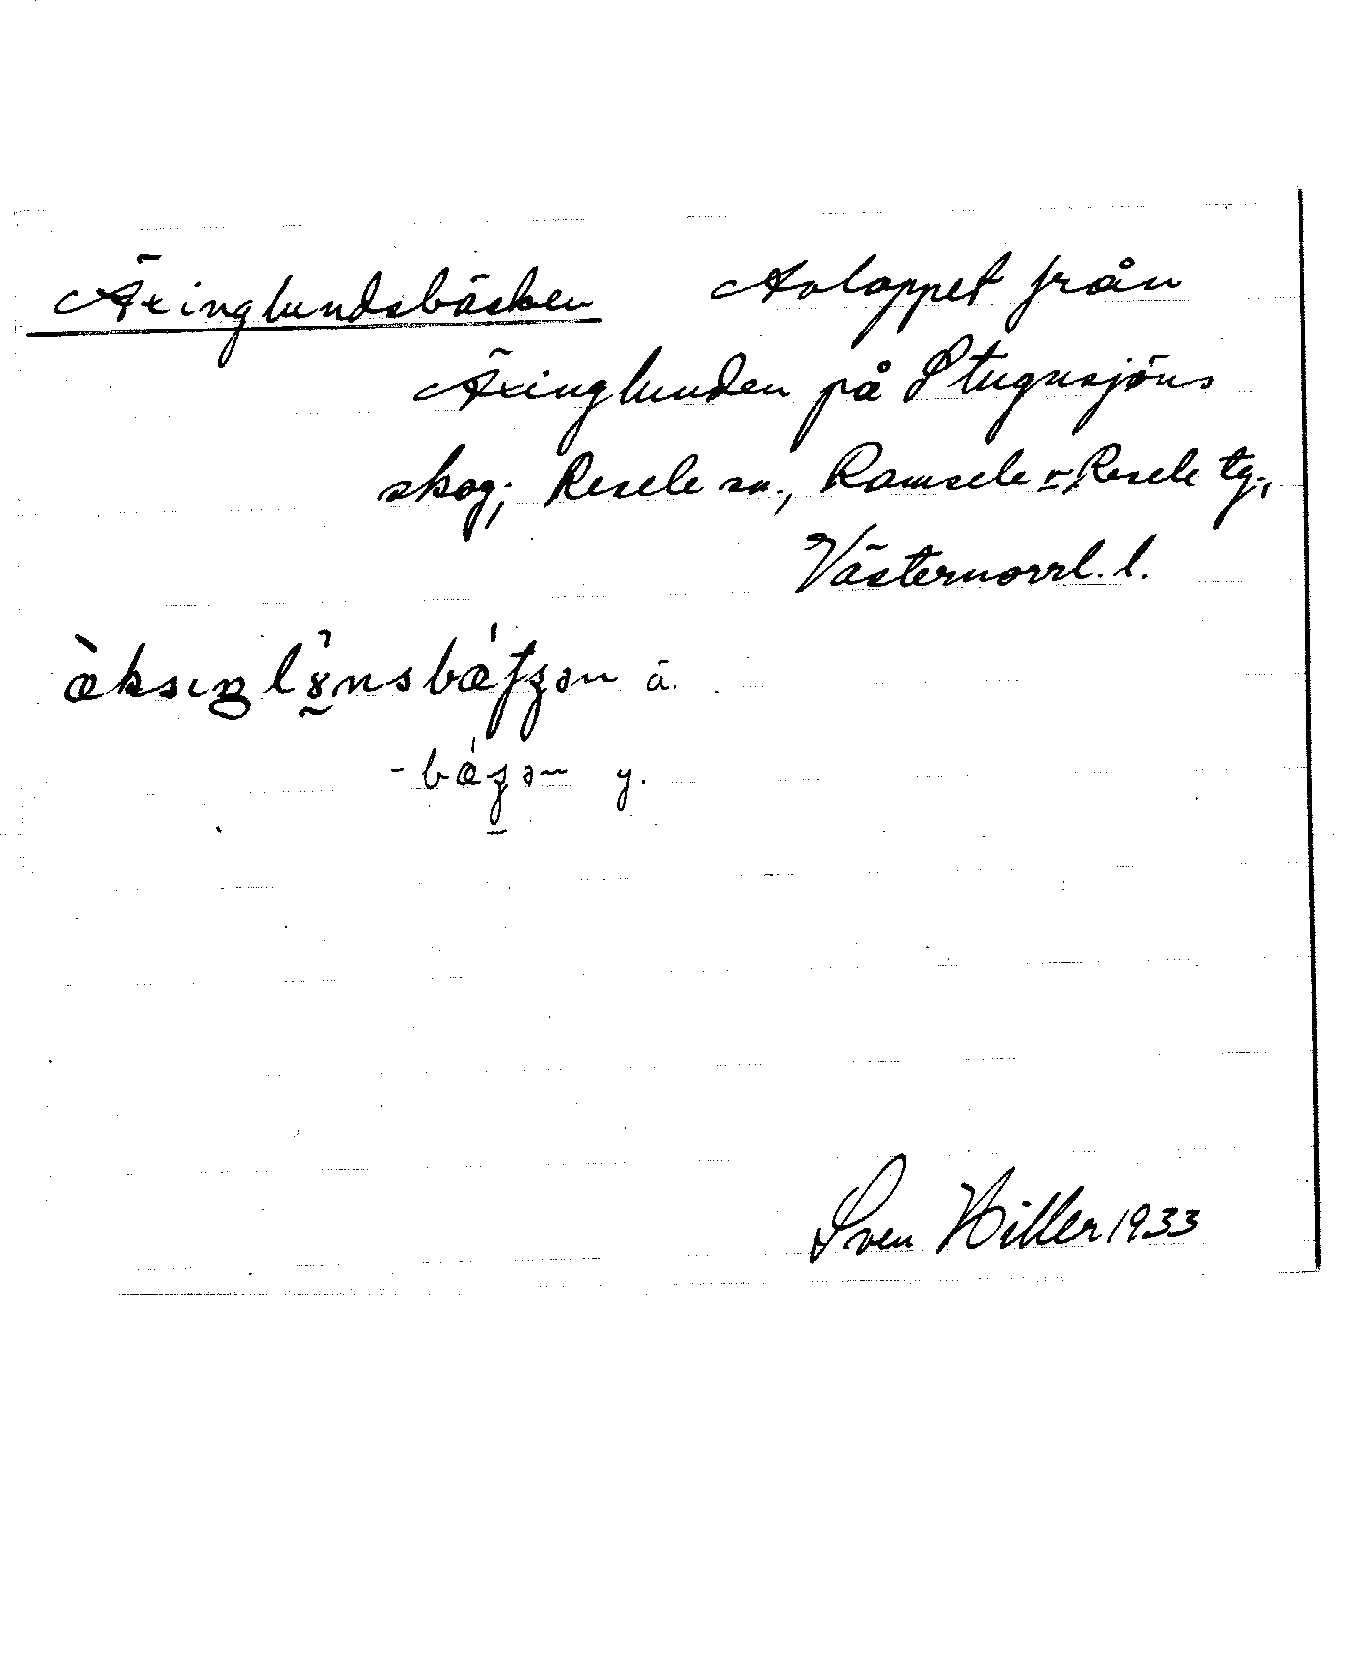 Äxinglundsbäcken Avloppet från
Äxinglunden på Stugusjöns
skog; Resele sn., Ramsele o. Resele tg.,
Västernorrl. l.
ä.
-bǽʒən y.
Sven Hiller 1933